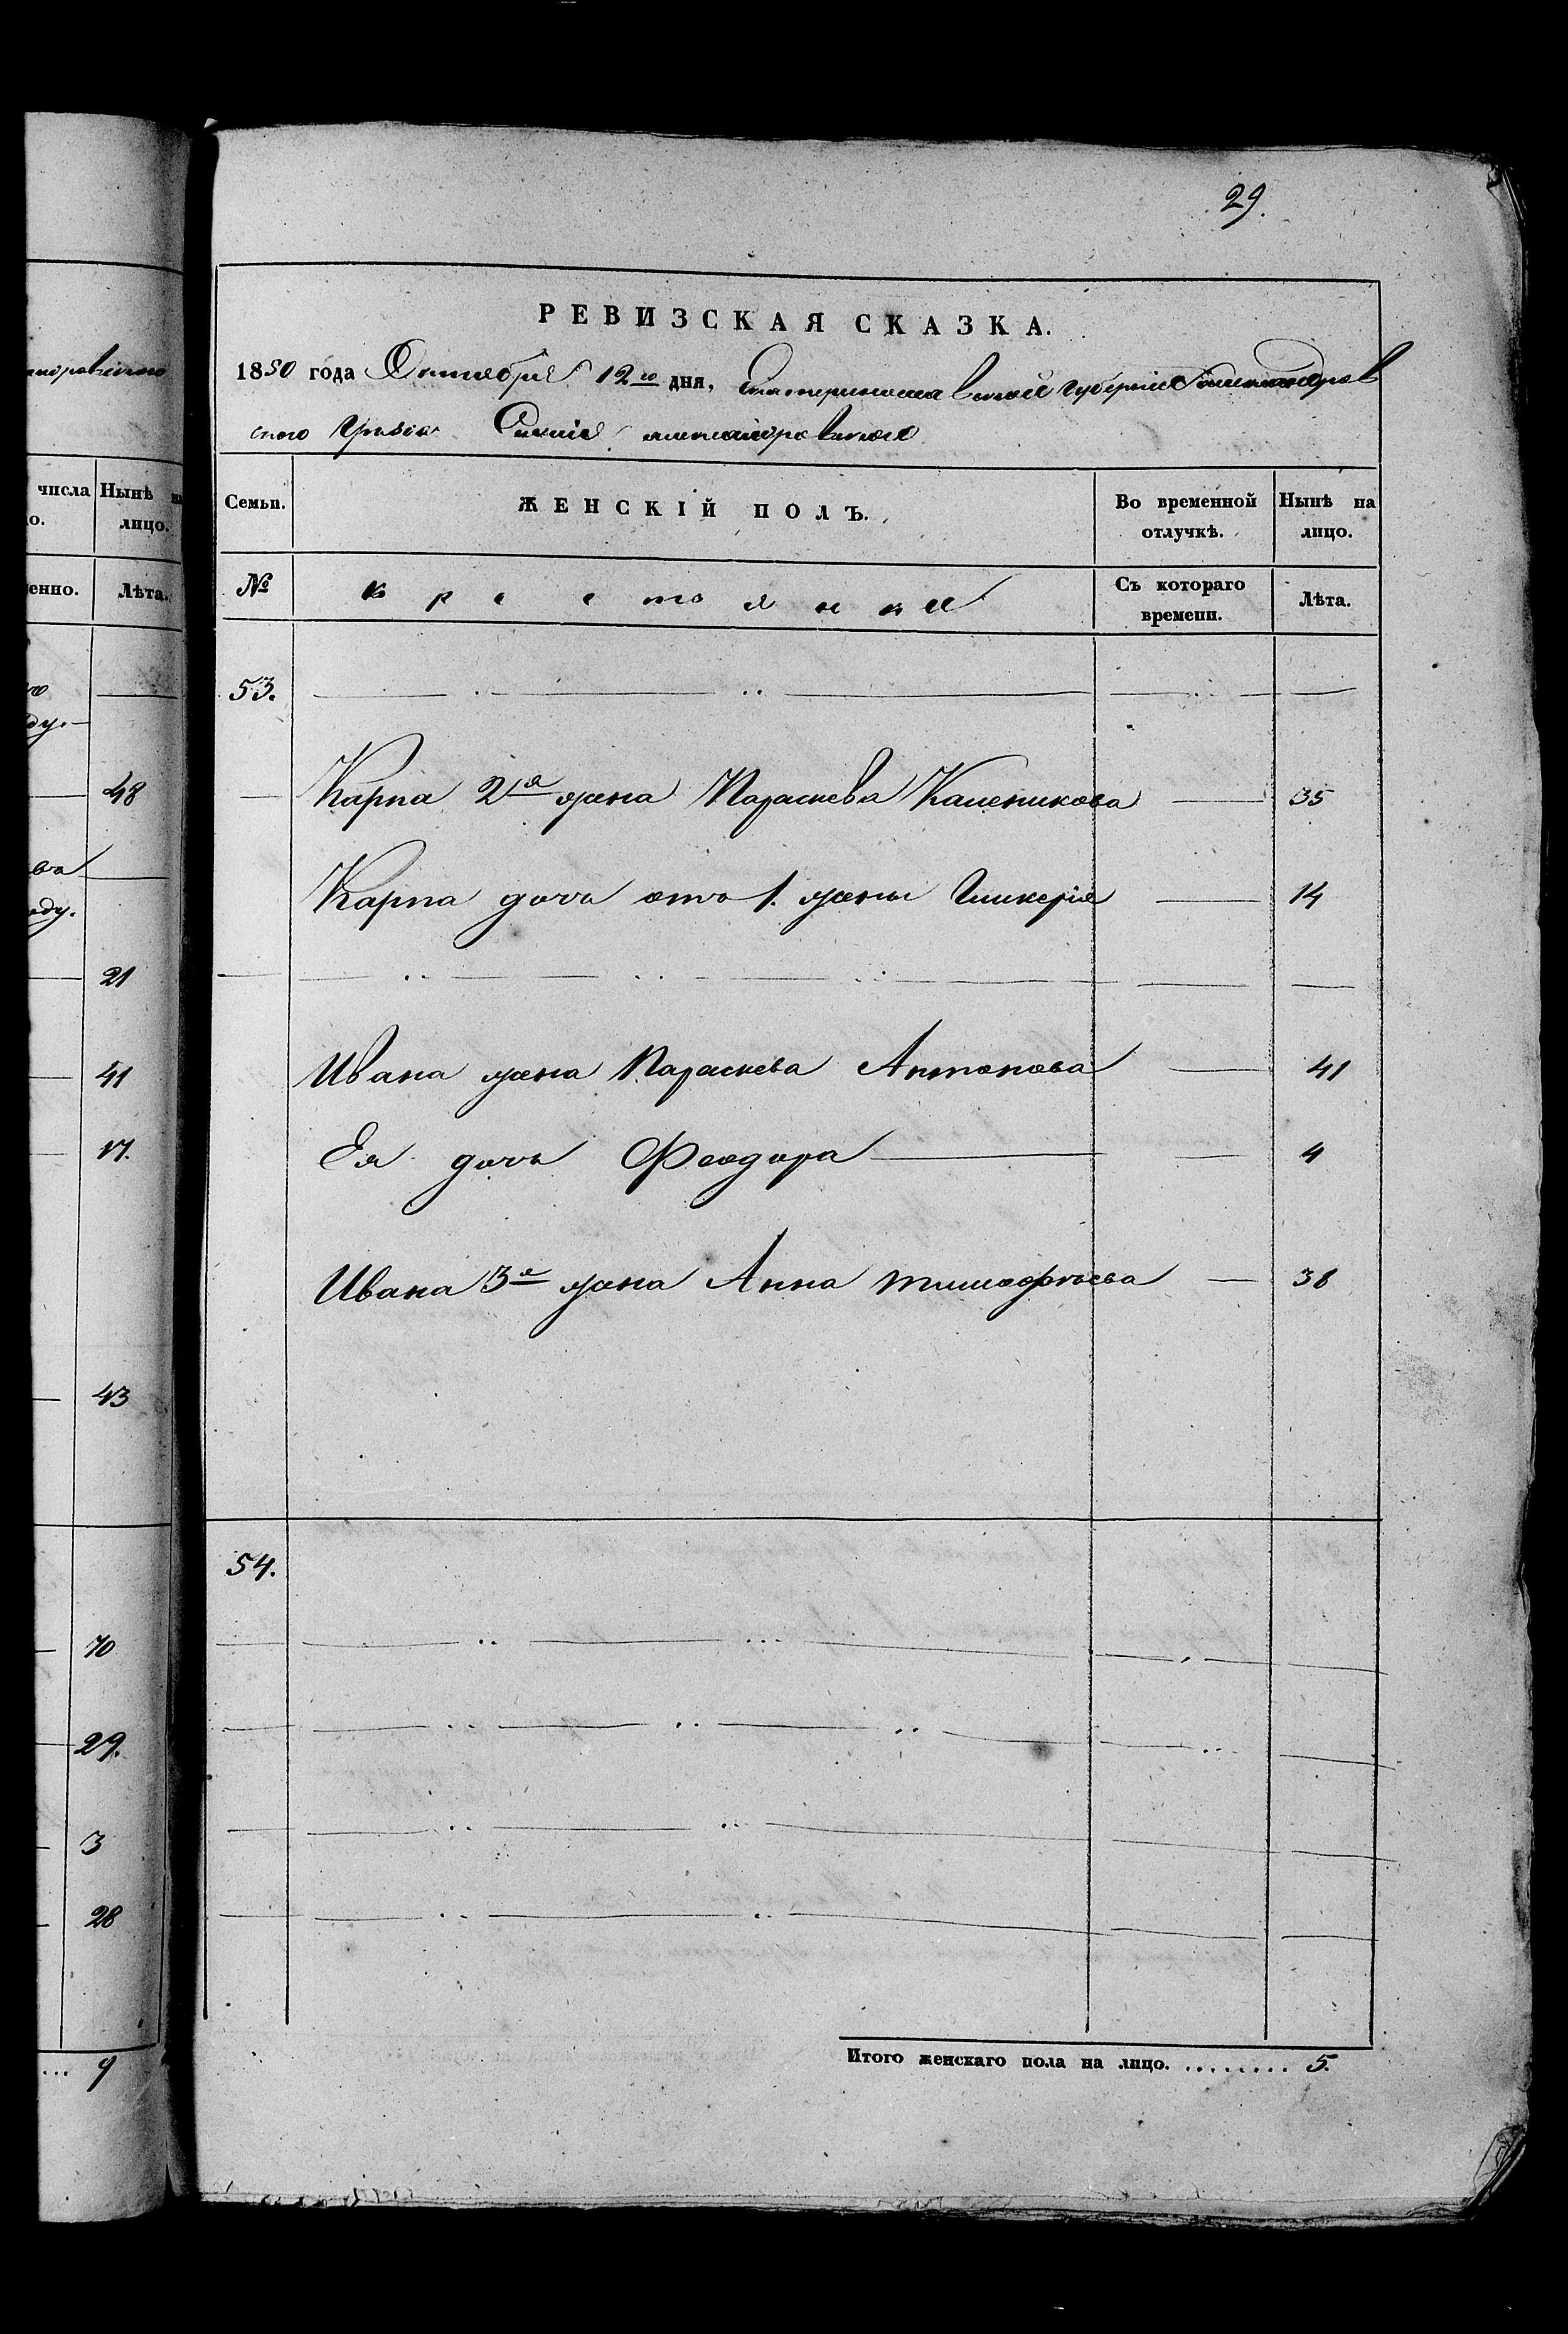 анровскаго
числа Нынѣ на
о. лицо.
енно. Лѣта.
го
ду.
48
въ
оду.
21
41
17.
43
70
29.
3
28
... 9
29.
РЕВИЗСКАЯ СКАЗКА.
1850 года Октября 12го дня, Екатеринославской губерніи Александров
скаго уѣзда Александровской
Семьи. ЖЕНСКІЙ ПОЛЪ. Во временной Нынѣ на
отлучкѣ. лицо.
№ крестьянки Съ котораго Лѣта.
времени.
53.
Карпа 2я жена Параскева Каленикова 35
Карпа дочь отъ 1. жены Гликерія 14
Ивана жена Параскева Антонова 41
Ея дочь Феодора 4
Ивана 3я жена Анна Тимофѣева 38
54.
Итого женскаго пола на лицо. ......... 5.